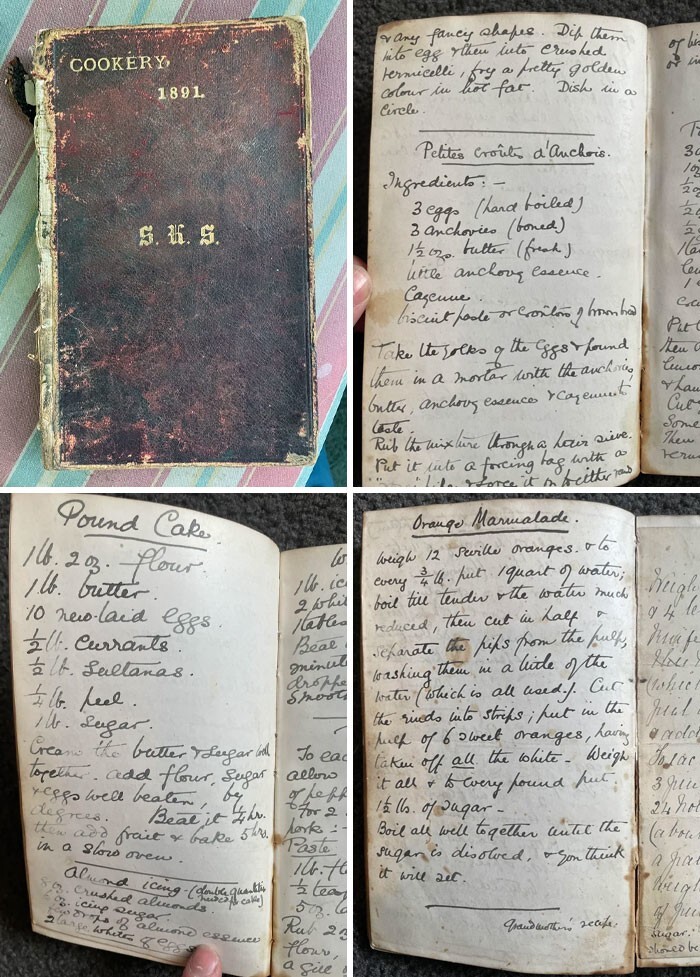 COOKERY,
1891.
S. K. S.
& any fancy shapes. Dip them
into egg & then into crushed
vermicelli, fry a pretty golden
colour in hot fat. Dish in a
circle.
Petites Croûtes d'Anchois.
Ingredients: -
3 eggs (hard boiled)
3 anchovies (boned)
1½ ozs. butter (fresh)
little anchovy essence.
Cayenne.
biscuit paste or croûtons of brown bread
Take the yolks of the eggs & pound
them in a mortar with the anchovies,
butter, anchovy essence & cayenne to
taste.
Rub the mixture through a hair sieve.
Put it into a forcing bag with a
& force it on to either
Pound Cake.
1 lb. 2 oz. flour.
1 lb. butter.
10 new-laid eggs.
½ lb. currants.
½ lb. Sultanas.
¼ lb. peel.
1 lb. Sugar.
Cream the butter & sugar well
together. add flour, sugar
& eggs well beaten, by
degrees. Beat it ¼ hr.
then add fruit & bake 5 hrs.
in a slow oven.
Almond icing - (double quantities
for cake)
8 oz. crushed almonds
oz. icing sugar.
drops of almond essence
2 large whites of eggs
1 lb. ic
2 whit
Beat
minute
droppe
Smooth
To eac
allow
of pepp
For 2
pork: -
Paste
1 lb. fl
½ teas
5 oz. la
Rub 2
flour,
a gill
Orange Marmalade.
Weigh 12 Seville oranges. & to
every ¾ lb. put 1 quart of water;
boil till tender & the water much
reduced, then cut in half &
separate the pips from the pulp,
washing them in a little of the
water (which is all used.). Cut
the rinds into strips; put in the
pulp of 6 sweet oranges, having
taken off all the white. Weigh
it all & to every pound put
1½ lbs. of sugar -
Boil all well together until the
sugar is disolved, & you think
it will set.
Grandmother's recipe.